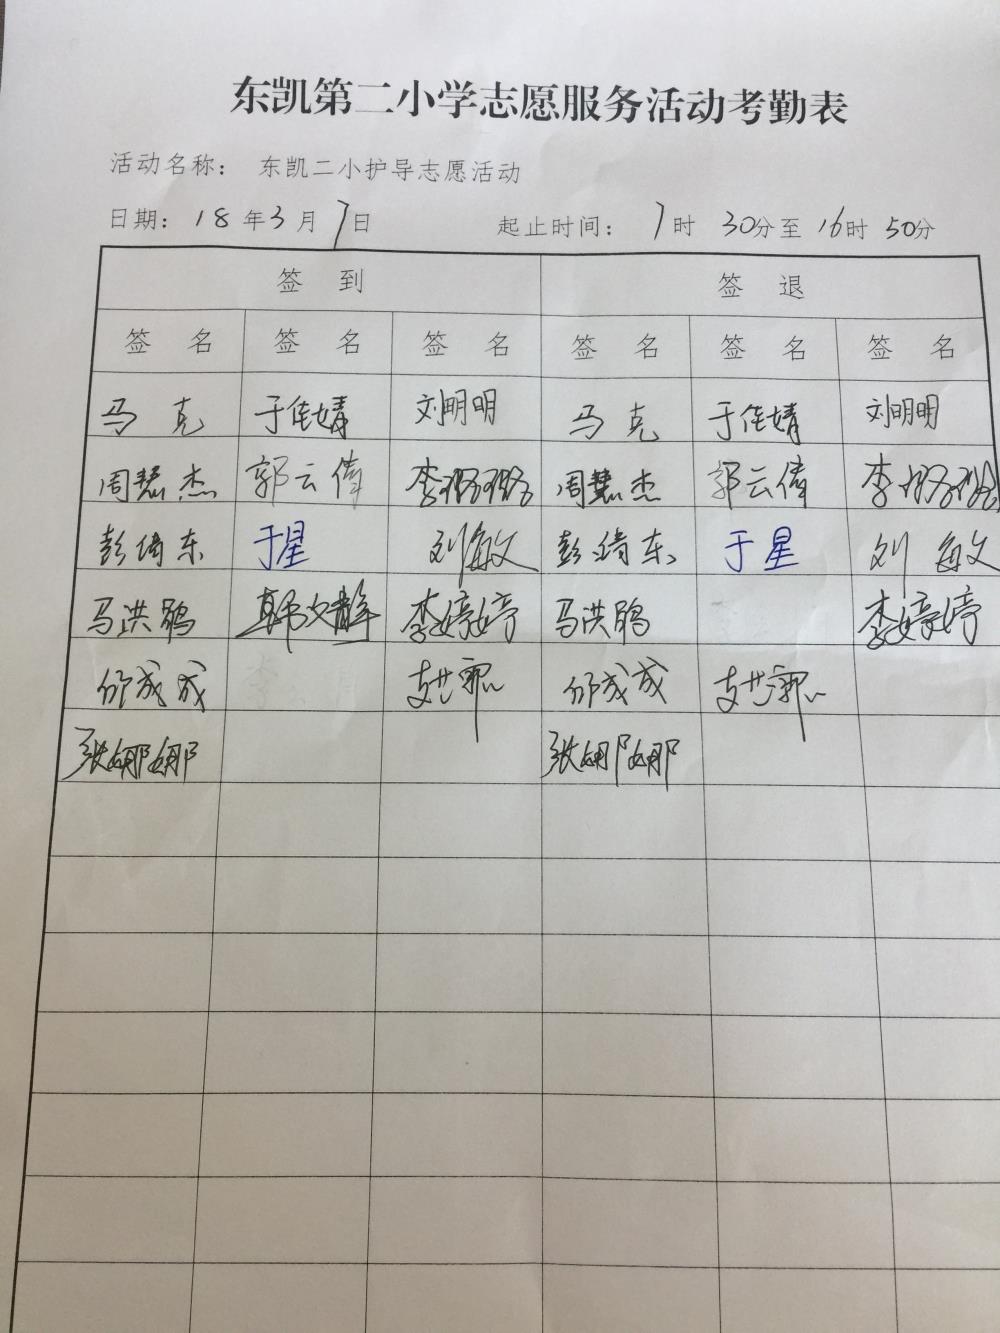 东凯第二小学志愿服务活动考勤表
活动名称： 东凯二小护导志愿活动
日期：18年3月7日 起止时间：7时30分至16时50分
签到 签退
签名 签名 签名 签名 签名 签名
马克 于佳婧 刘明明 马克 于佳婧 刘明明
周慧杰 郭云伟 李璐璐 周慧杰 郭云伟 李璐璐
彭琦东 于星 刘敏文 彭琦东 于星 刘敏文
马洪鹃 韩文静 李婷婷 马洪鹃 李婷婷
邰成成 邰成成
张娜娜 张娜娜